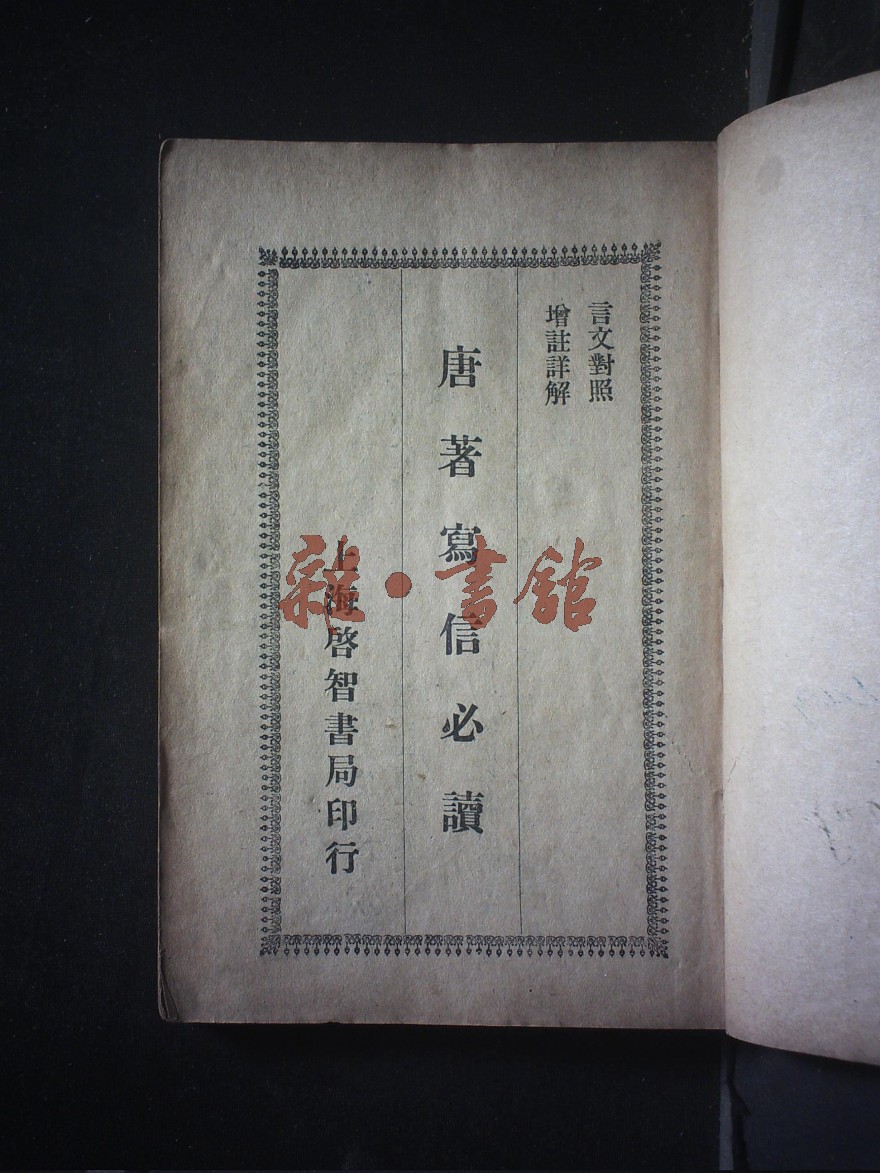 言文對照
增註詳解
唐著寫信必讀
上海啓智書局印行
雜·書館